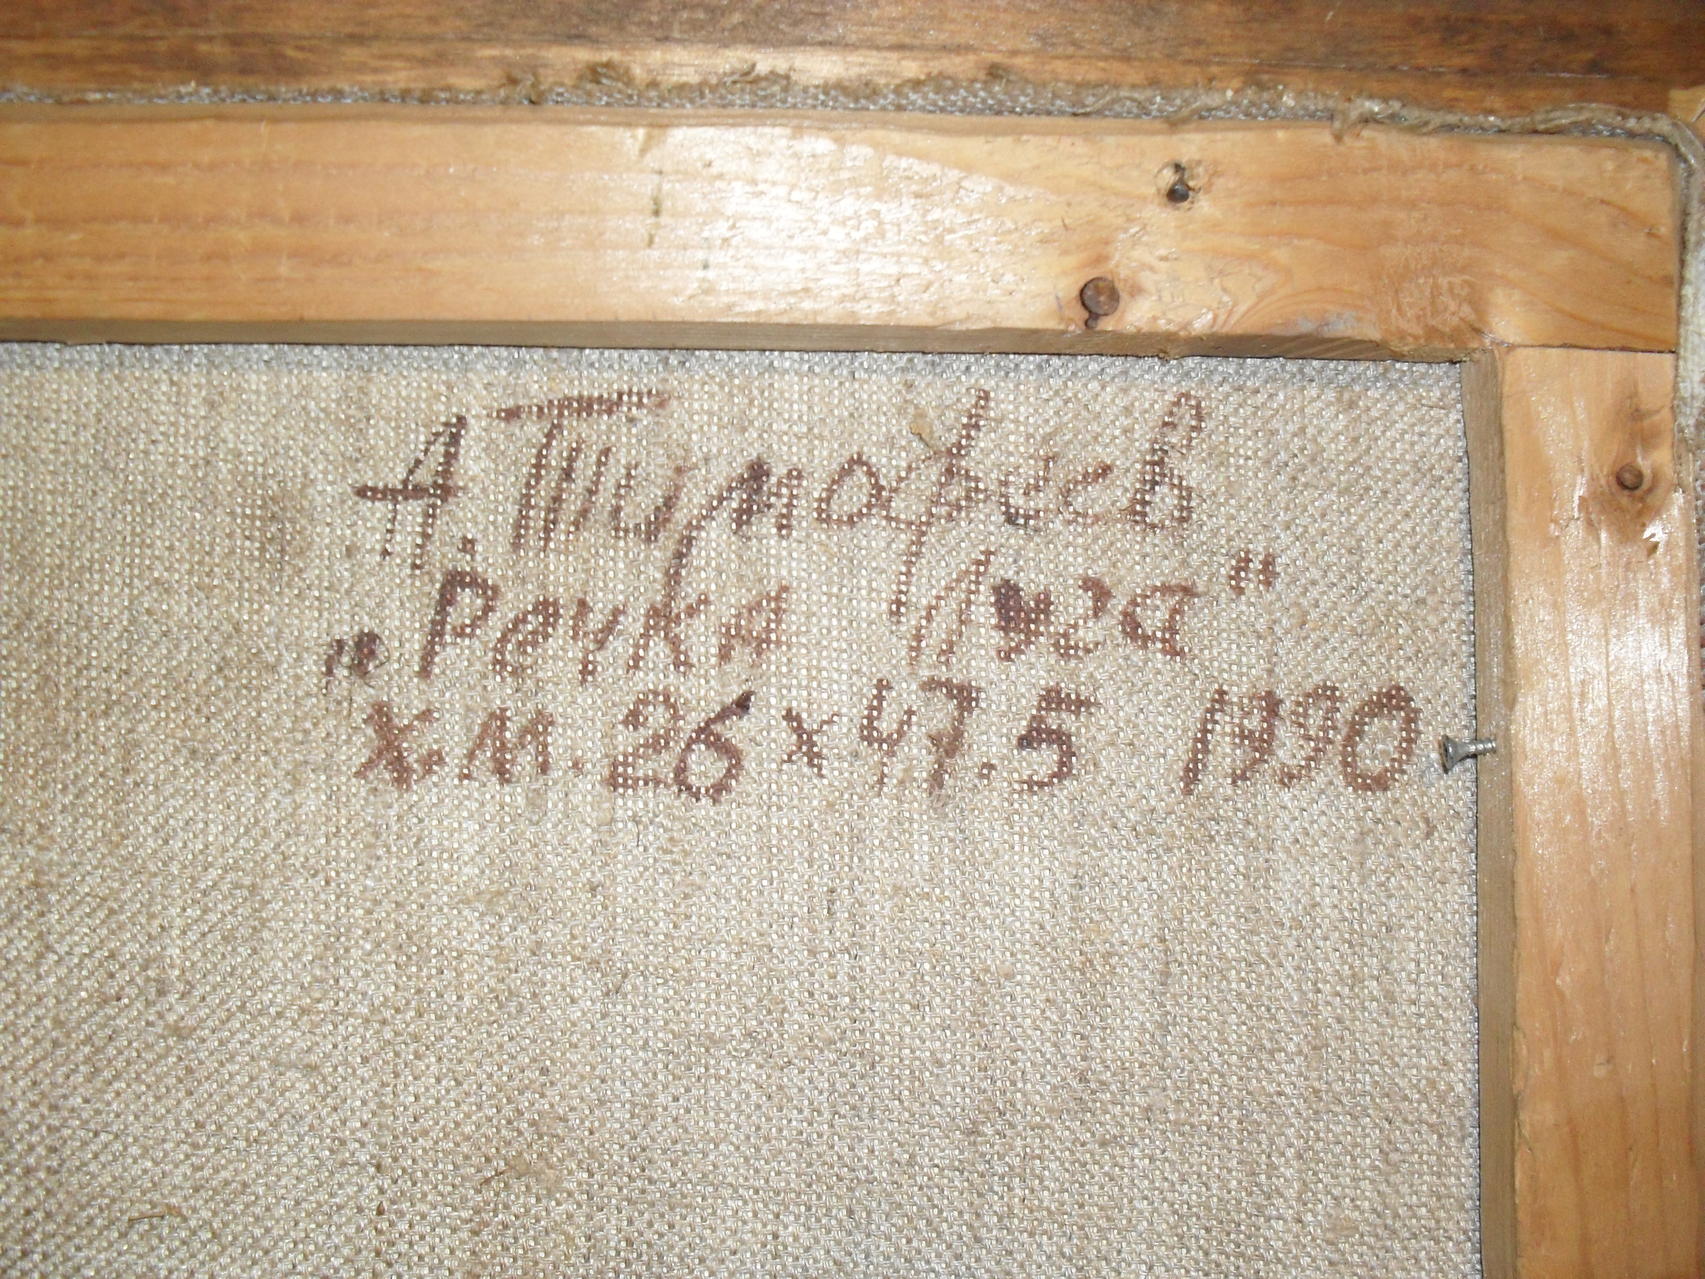 А. Тимофеев
„Речка Луга"
х.м. 26 х 47.5 1990